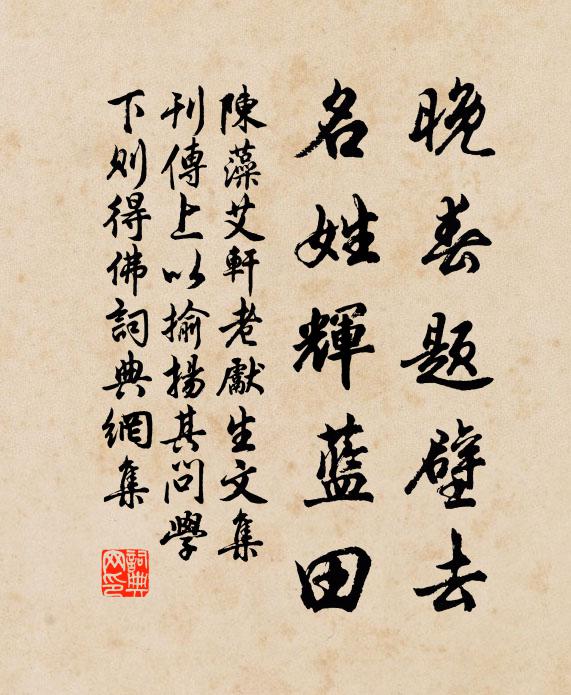 晚春题壁去
名姓輝藍田
陳藻艾軒老獻生文集
刊傳上以揄揚其問學
下则得佛詞典網集
詞典网印